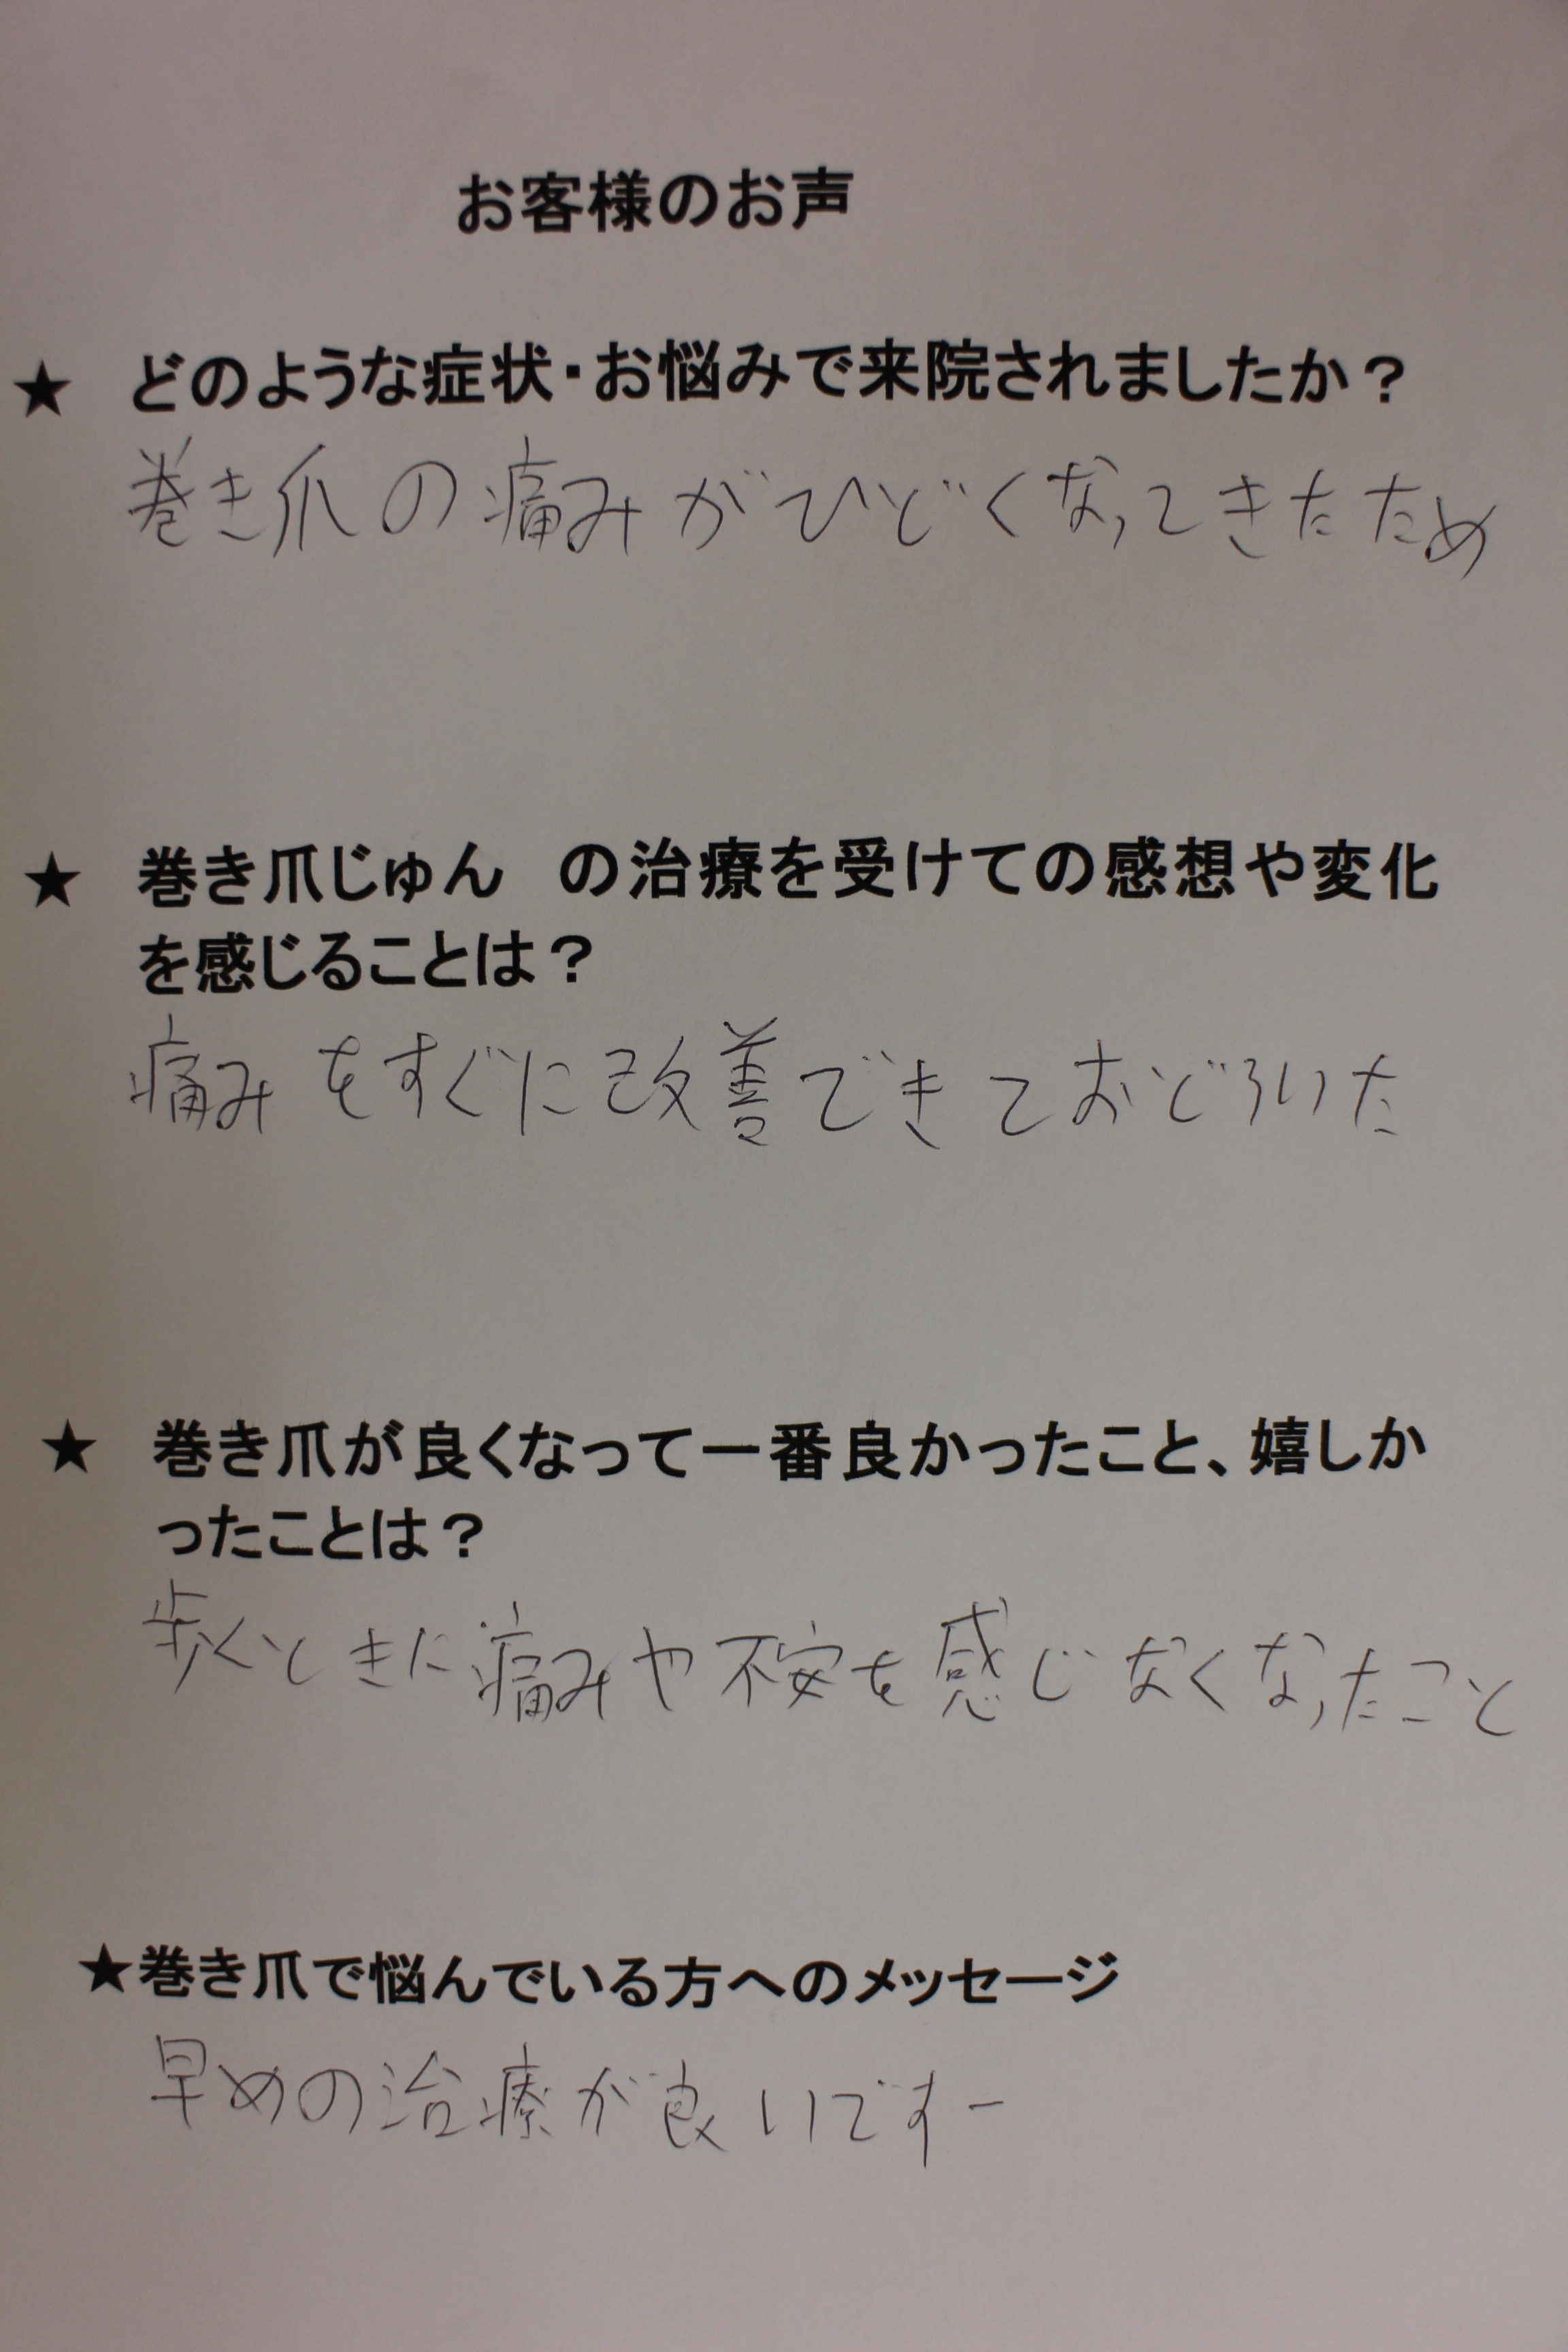 お客様のお声
★ どのような症状・お悩みで来院されましたか？
巻き爪の痛みがひどくなってきたため
★ 巻き爪じゅん　の治療を受けての感想や変化
を感じることは？
痛みをすぐに改善できておどろいた
★ 巻き爪が良くなって一番良かったこと、嬉しか
ったことは？
歩くときに痛みや不安を感じなくなったこと
★巻き爪で悩んでいる方へのメッセージ
早めの治療が良いですー